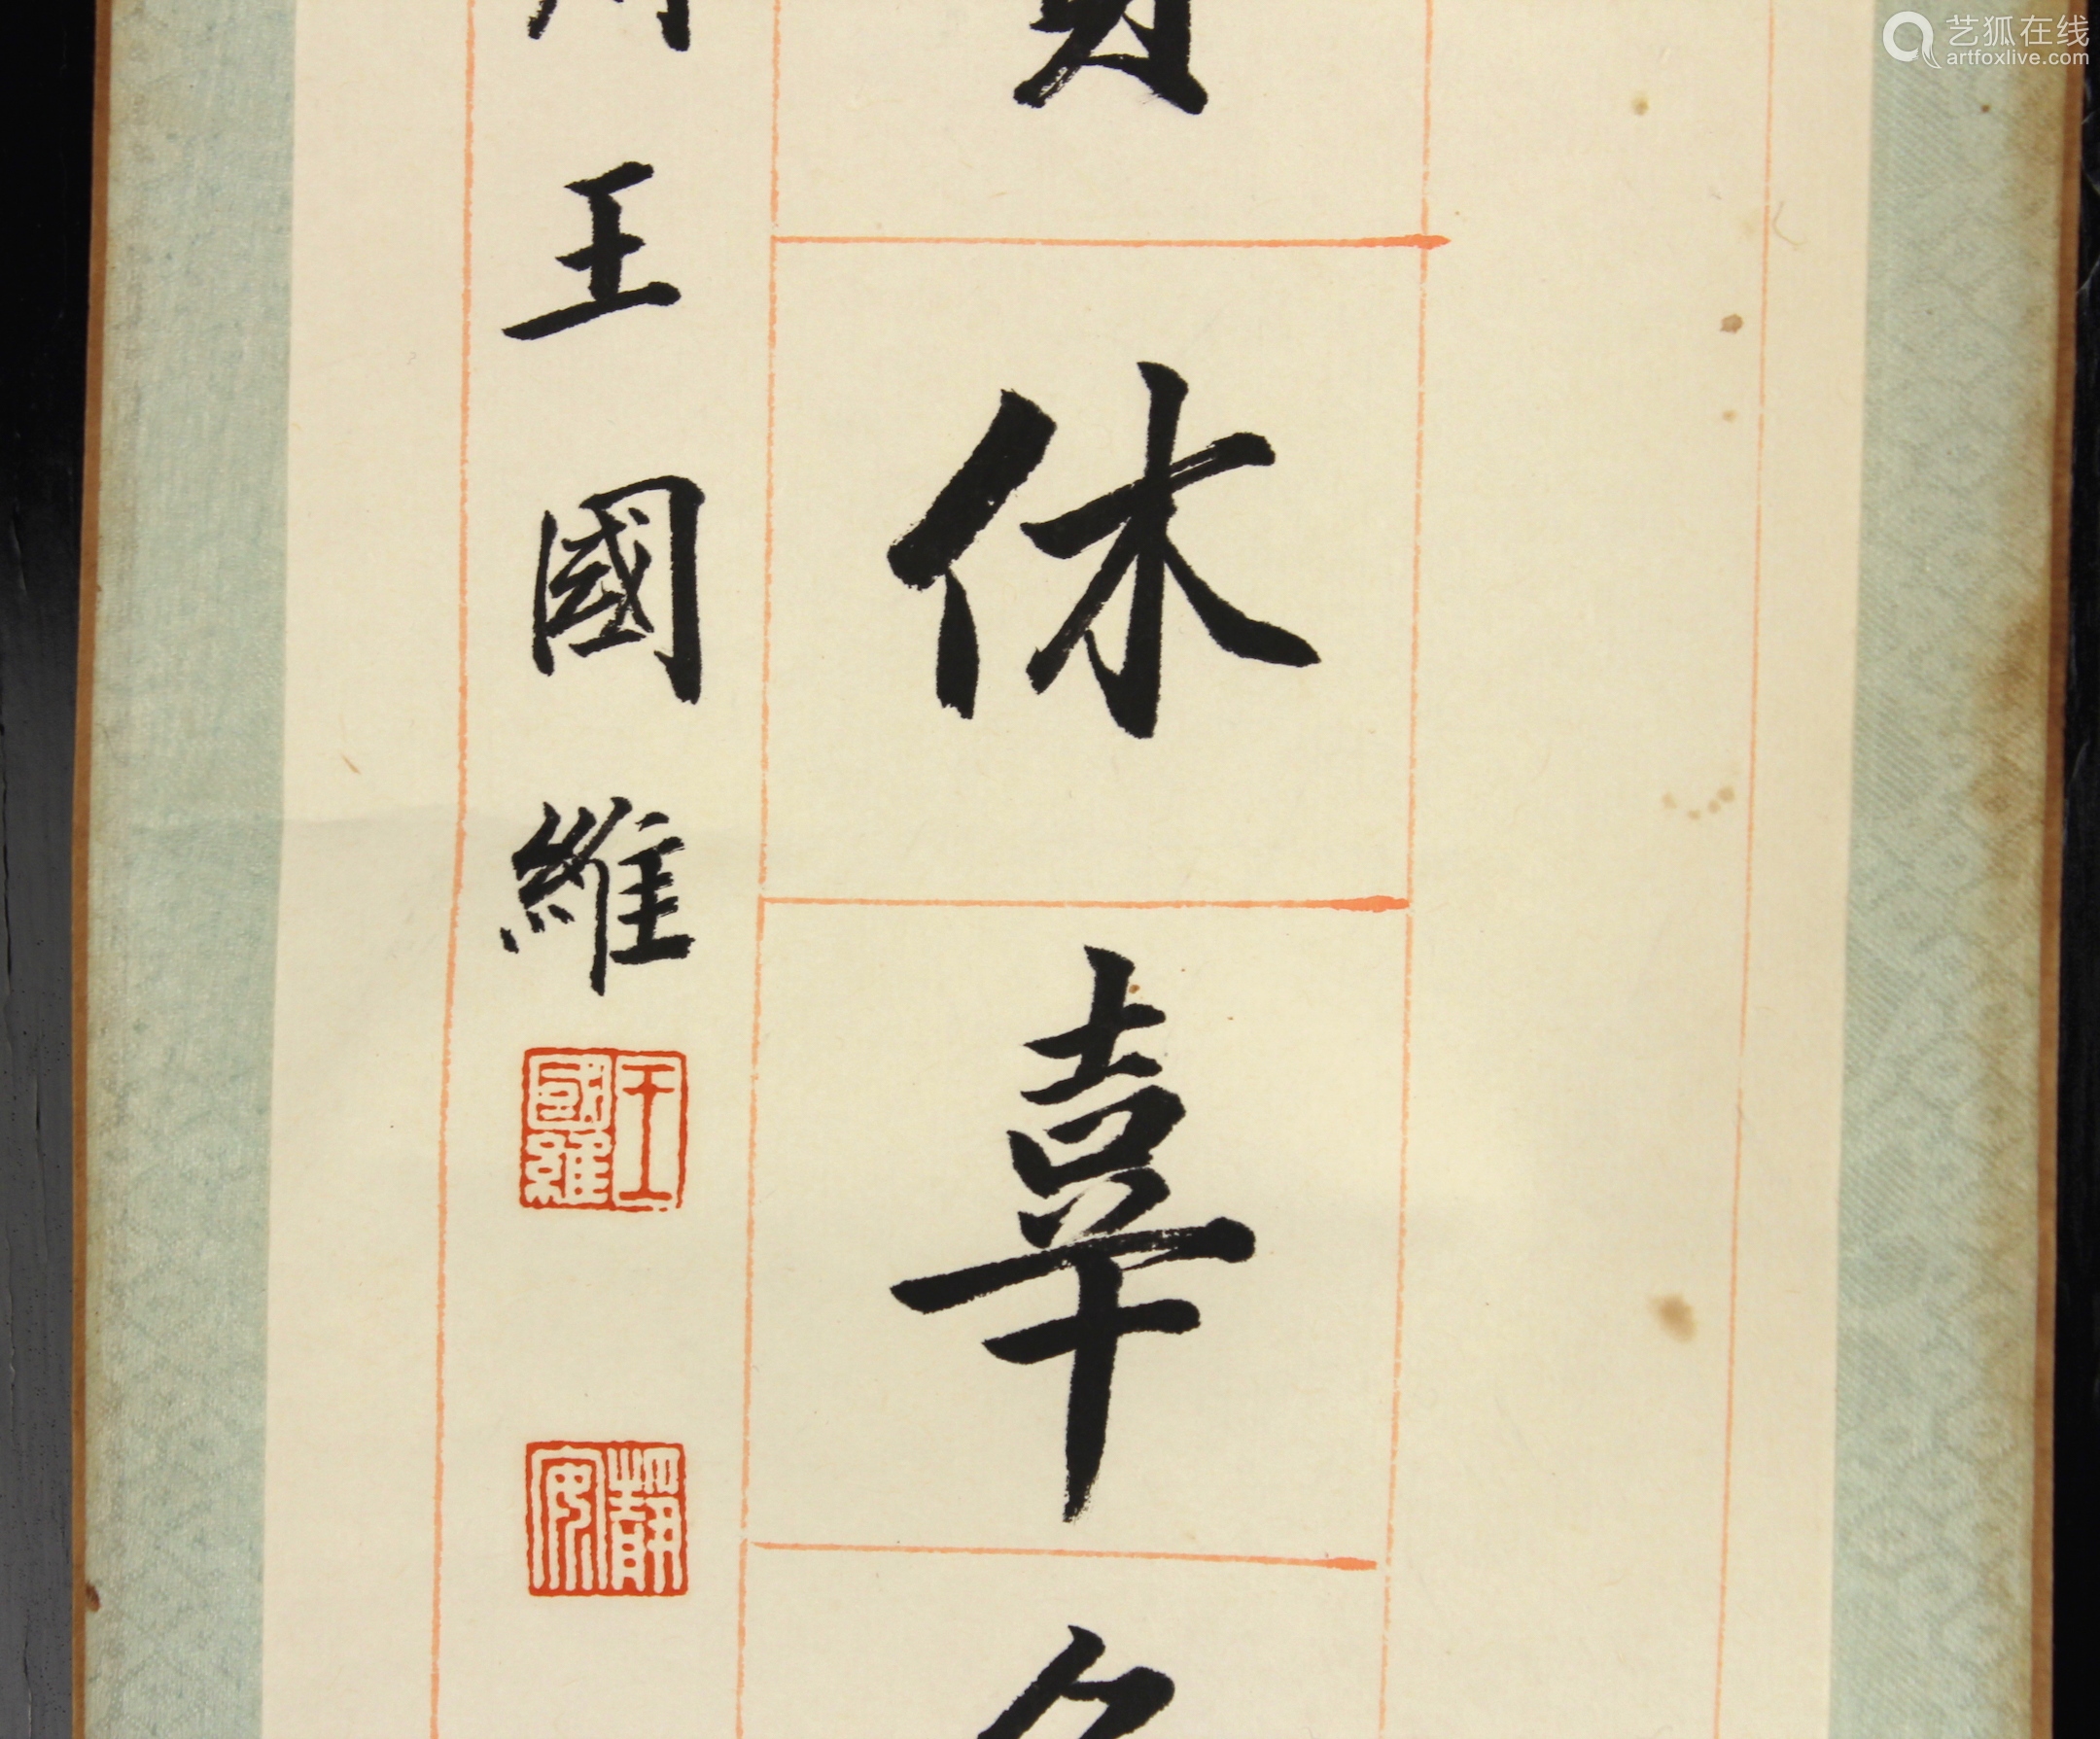 艺狐在线
artfoxlive.com
休辜
王國維
王國維
靜安